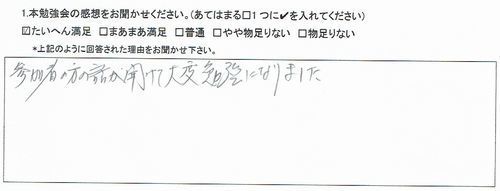 1.本勉強会の感想をお聞かせください。(あてはまる□1つに✔を入れてください)
☑たいへん満足 □まあまあ満足 □普通 □やや物足りない □物足りない
*上記のように回答された理由をお聞かせ下さい。
参加者の方の話が聞けて大変勉強になりました